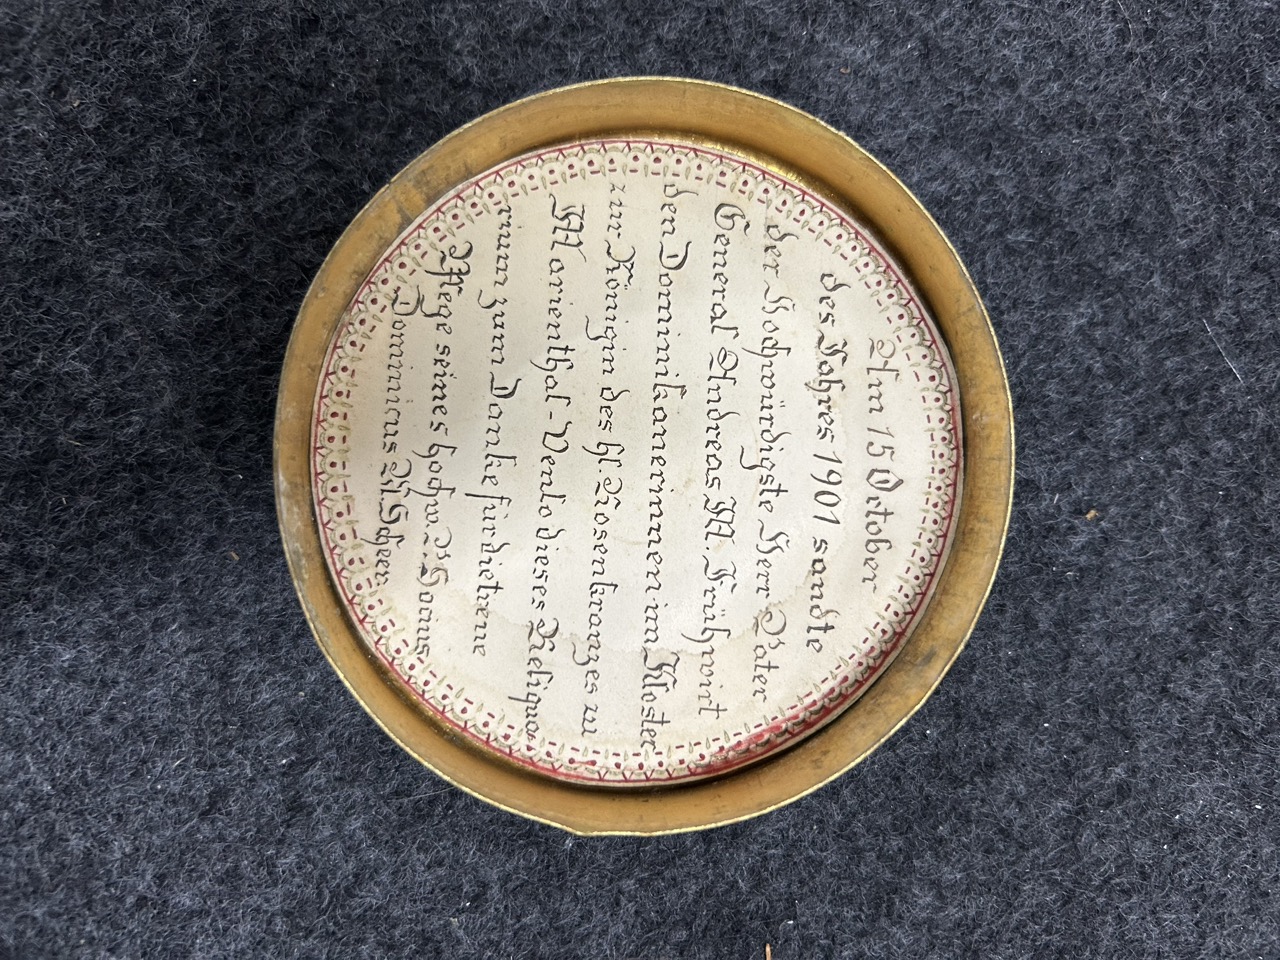 Am 15 October
des Jahres 1901 sandte
der Hochwürdigste Herr Pater
General Andreas M. Frühwirt
den Dominikanerinnen im Kloster
zur Königin des hl. Rosenkranzes zu
Marienthal-Venlo dieses Reliqua-
rium zum Danke für die treue
Pflege seines hochw. P. Socius
Dominicus M. Scheer.